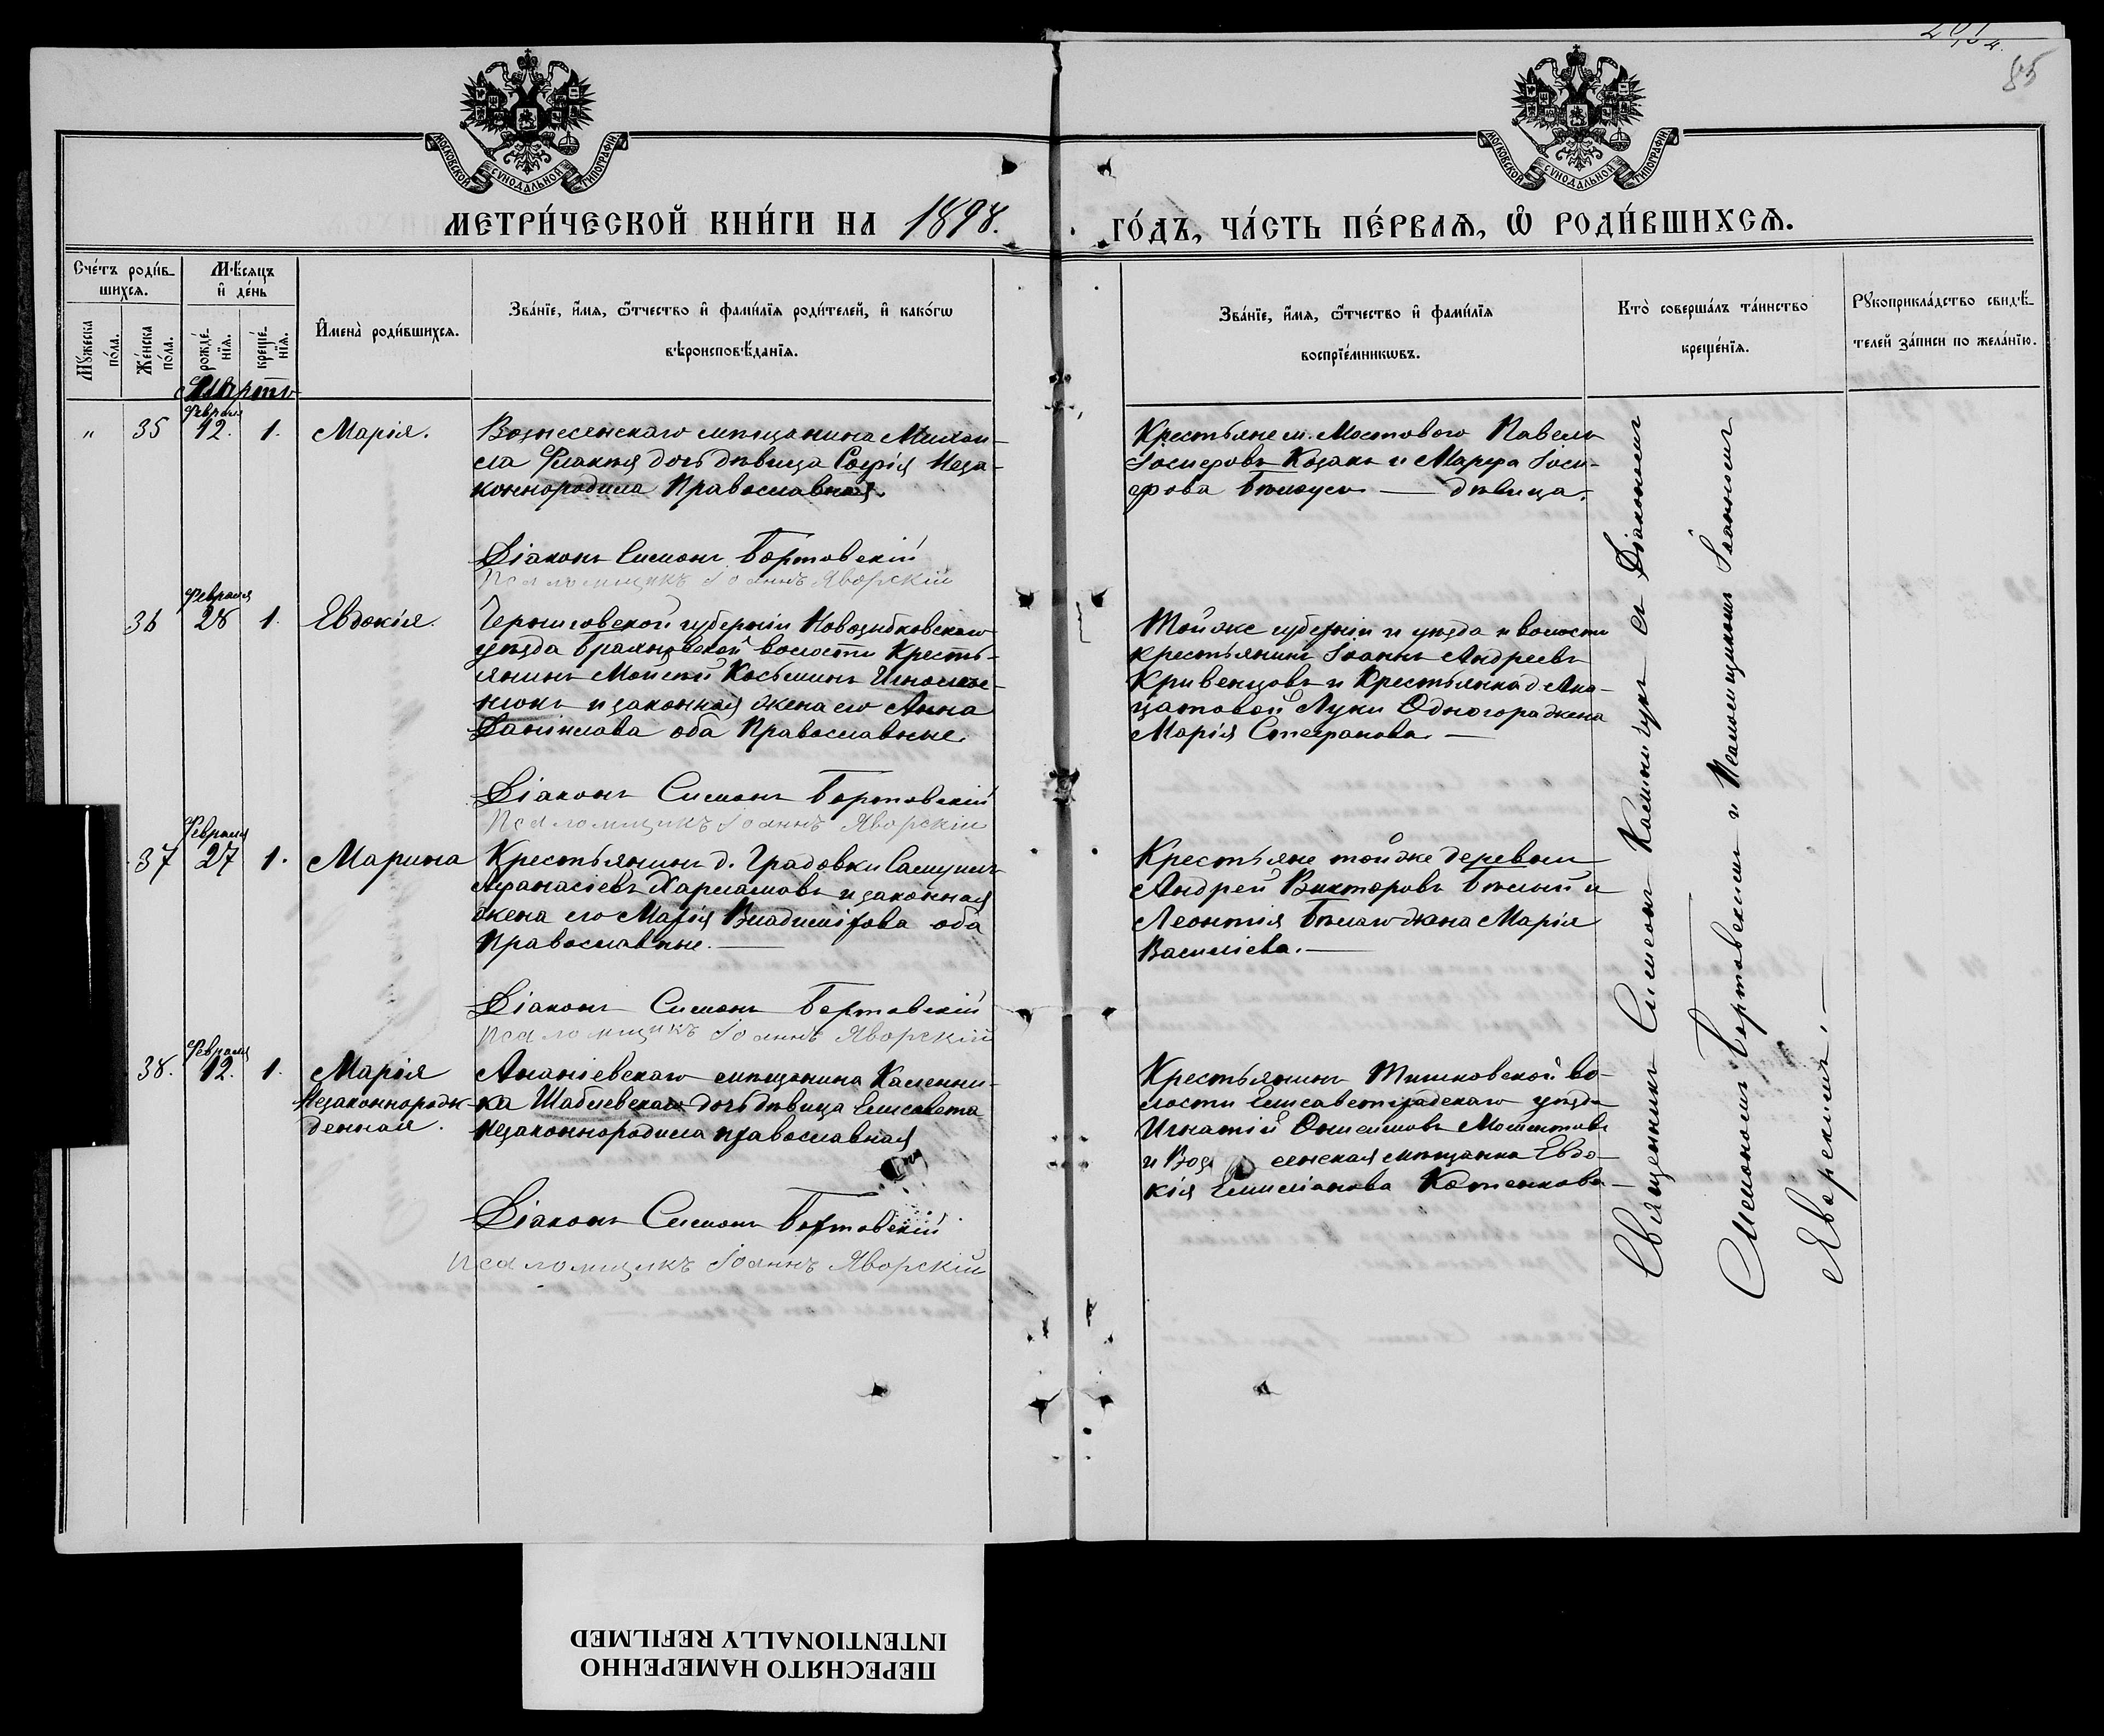 85
МОСКОВСКОЙ СѴНОДАЛЬНОЙ ТИПОГРАФІИ
МОСКОВСКОЙ СѴНОДАЛЬНОЙ ТИПОГРАФІИ
МЕТРИ́ЧЕСКОЙ КНИ́ГИ НА 1898.
ГО́ДЪ, ЧА́СТЬ ПЕ́РВАѦ, Ѿ РОДИ́ВШИХСѦ.
Сче́тъ роди́в-
шихсѧ.
Мꙋ́жеска по́ла.
Же́нска по́ла.
Мѣ́сѧцъ
и҆ де́нь
рожде́-
нїѧ.
креще́-
нїѧ.
И҆мена̀ роди́вшихсѧ.
Зва́нїе, и҆́мѧ, ѻ҆́тчество и҆ фами́лїѧ роди́телей, и҆ како́гѡ
вѣроисповѣ́данїѧ.
Зва́нїе, и҆́мѧ, ѻ҆́тчество и҆ фами́лїѧ
воспрїе́мникѡвъ.
Кто̀ соверша́лъ та́инство
креще́нїѧ.
Рꙋкоприкла́дство свидѣ́-
телей за́писи по жела́нїю.
Мартъ
Февраля
" 35 12. 1. Марія.
Вознесенскаго мѣщанина Михаи-
ла дочь дѣвица Софія Неза-
коннородила Православная.
Діаконъ Симонъ Бортовскій
Псаломщикъ Іоаннъ Яворскій
Крестьяне м. Мостового Павелъ
Іосифовъ Козакъ и Марфа Іоси-
фова — дѣвица.
Февраля
36 28 1. Евдокія.
Черниговской губерніи Новозыбковскаго
уѣзда волости Кресть-
янинъ Моисей Косьминъ
и законная жена его Анна
Даніилова оба Православные.
Діаконъ Симонъ Бортовскій
Псаломщикъ Іоаннъ Яворскій
Той же губерніи и уѣзда и волости
крестьянинъ Іоаннъ Андреевъ
Кривенцовъ и Крестьянка д. Ака-
цатовой Луки жена
Марія Стефанова. —
Февраля
37 27 1. Марина
Крестьянинъ д. Градовки Самуилъ
Афанасіевъ Харламовъ и законная
жена его Марія Владимірова оба
Православные. —
Діаконъ Симонъ Бортовскій
Псаломщикъ Іоаннъ Яворскій
Крестьяне той же деревни
Андрей Викторовъ Бѣлый и
Леонтія Бѣлаго жена Марія
Василіева. —
Февраля
38. 12. 1. Марія
Незаконнорож-
денная.
Ананіевскаго мѣщанина Калинни-
ка Шаблевскаго дочь дѣвица Елисавета
незаконнородила православная
Діаконъ Симонъ Бортовскій
Псаломщикъ Іоаннъ Яворскій
Крестьянинъ Тишковской во-
лости Елисаветградскаго уѣзда
Игнатій Онисимовъ
и Воз сенская мѣщанка Евдо-
кія Емиліанова Котенкова —
Священникъ Симеонъ съ Діакономъ
Симономъ Бортовскимъ и Псаломщикомъ Іоанномъ
Яворскимъ. —
ПЕРЕСНЯТО НАМЕРЕННО
INTENTIONALLY REFILMED